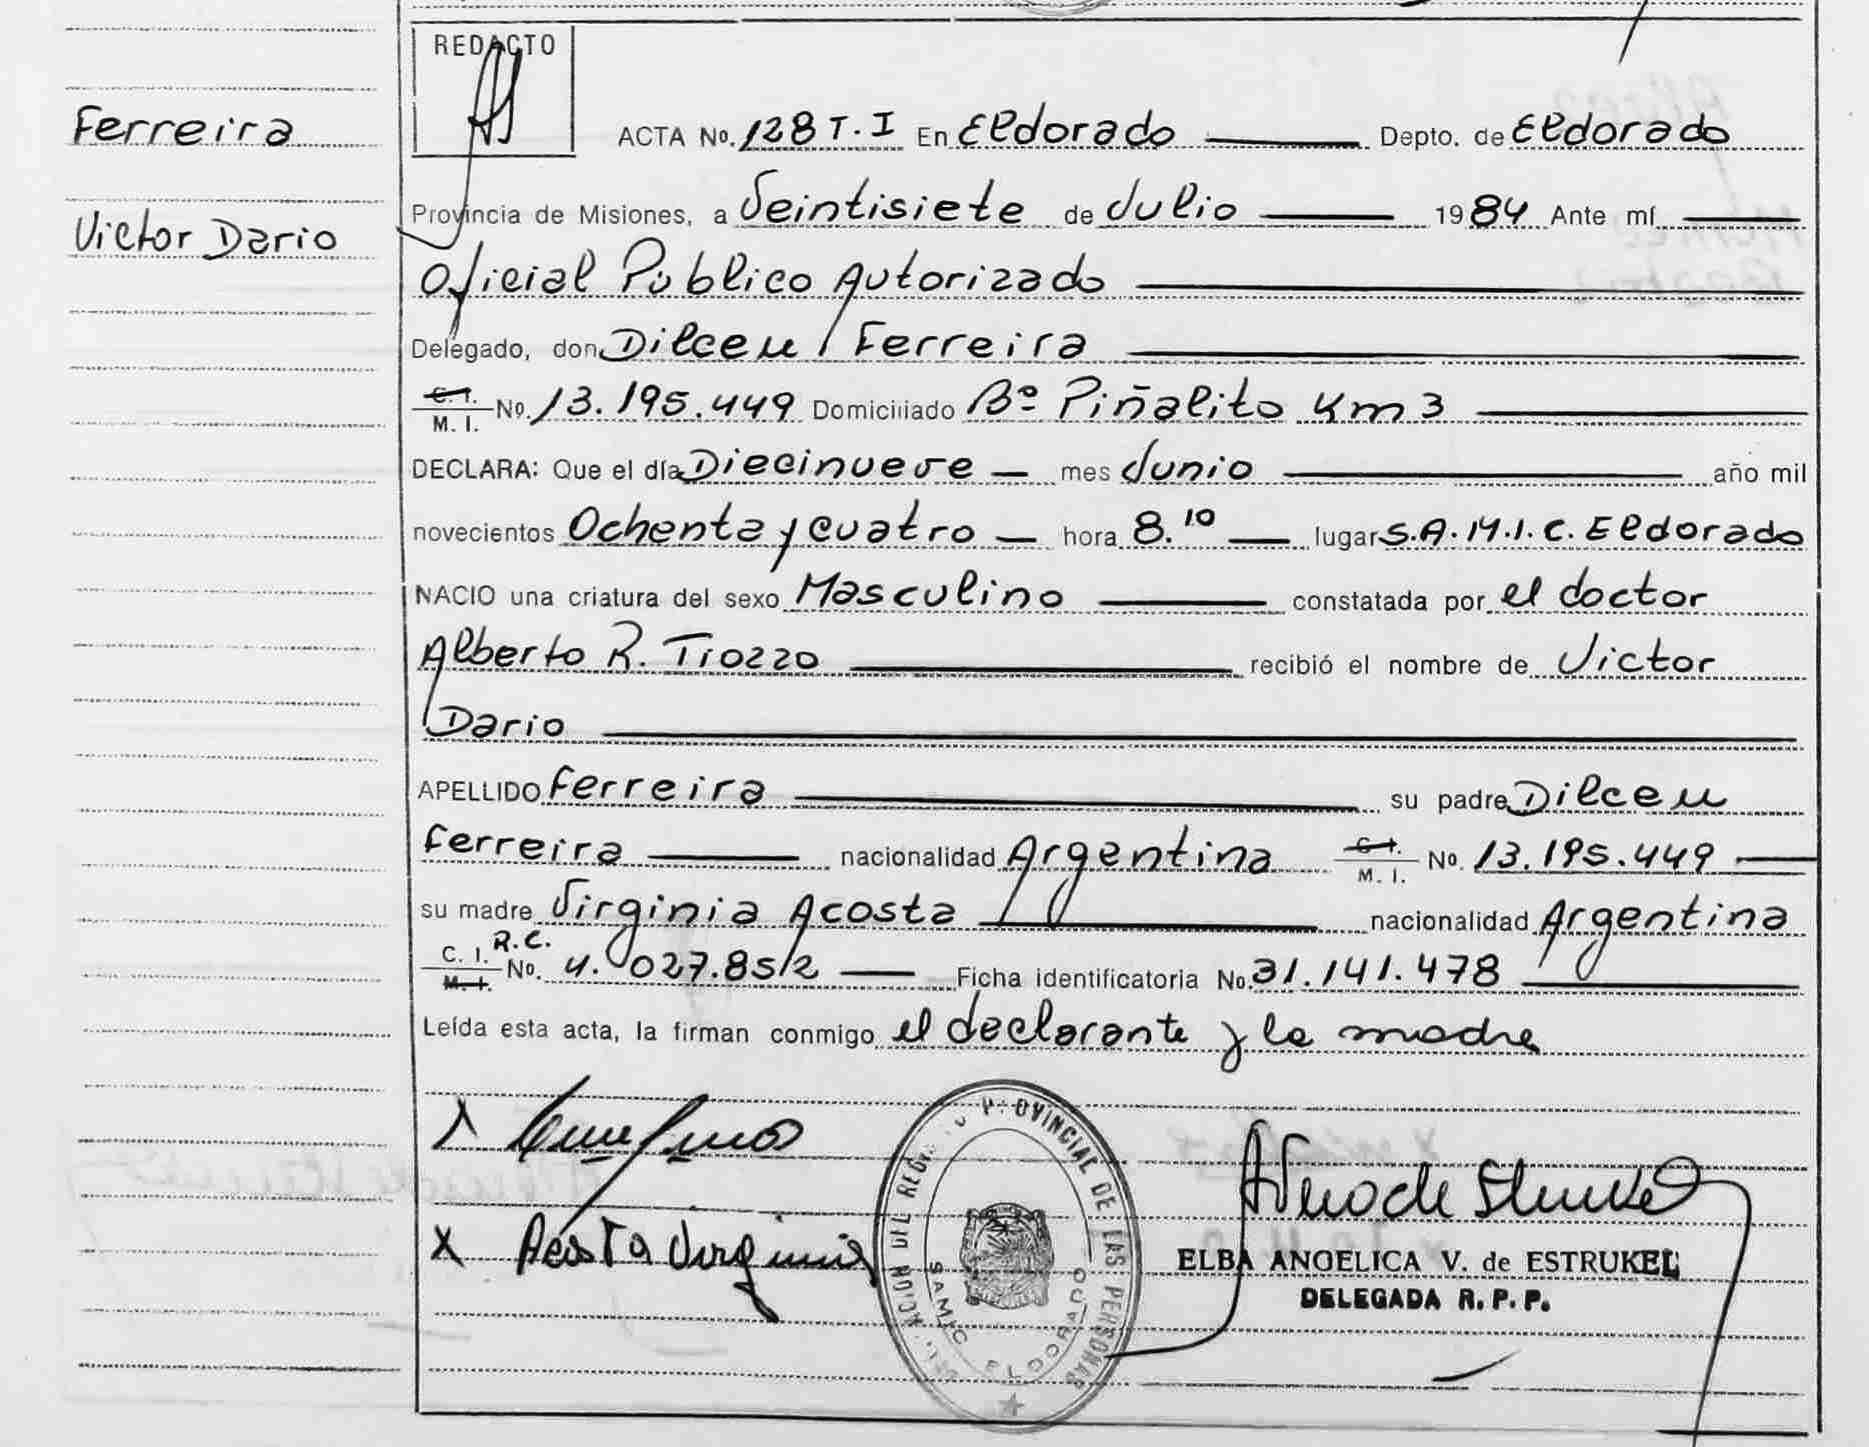 REDACTO
Ferreira
Victor Dario
ACTA No. 128 T. I En Eldorado Depto. de Eldorado
Provincia de Misiones, a Veintisiete de Julio 1984 Ante mí
Oficial Publico Autorizado
Delegado, don Dilceu Ferreira
C. I. M. I. No. 13.195.449 Domiciliado Bº Piñalito Km 3
DECLARA: Que el día Diecinueve mes Junio año mil
novecientos Ochenta y cuatro hora 8.10 lugar S.A.M.I.C. Eldorado
NACIO una criatura del sexo Masculino constatada por el doctor
Alberto R. Tiozzo recibió el nombre de Victor
Dario
APELLIDO Ferreira su padre Dilceu
Ferreira nacionalidad Argentina C. I. M. I. No. 13.195.449
su madre Virginia Acosta nacionalidad Argentina
C. I. M. I. R.C. No. 4.027.852 Ficha identificatoria No. 31.141.478
Leída esta acta, la firman conmigo el declarante y la madre
X Acosta Virginia
PROVINCIAL DE LAS PERSONAS
SAMIC ELDORADO
ELBA ANGELICA V. de ESTRUKEL
DELEGADA R. P. P.